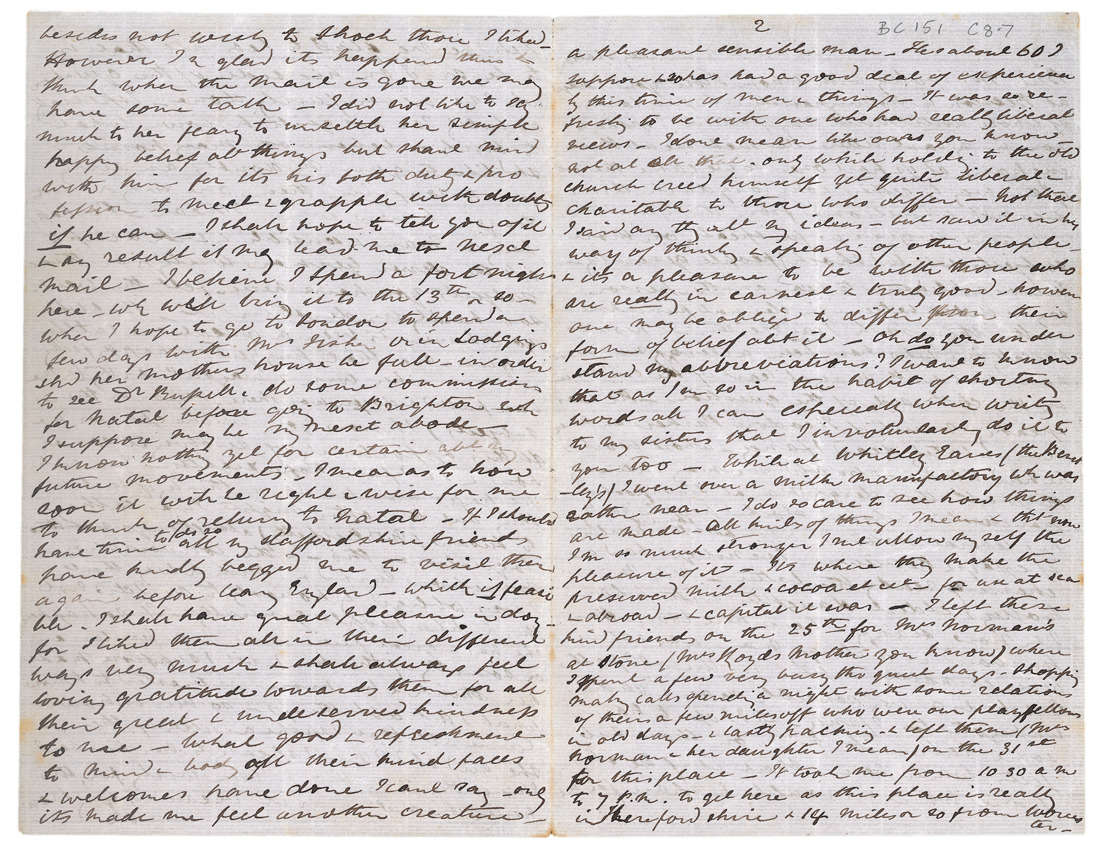 besides not wish to shock those I liked –
However I'm glad its happened thus &
think when the mail is gone we may
have some talk – I did not like to say
much to her fearg to unsettle her simple
happy belief abt things but shall mind
with him for its his both duty & pro
fession to meet & grapple with doubts
if he can – I shall hope to tell you of it
& any result it may lead me to next
mail – I believe I spend a fort night
here – wh will bring it to the 13th or so –
when I hope to go to London to spend a
few days with Mrs or in Lodgings
shd her mothers house be full – in order
to see Dr & do some commissions
for Natal before going to Brighton wh
I suppose may be my next abode –
I know nothg yet for certain abt my
future movements – I mean as to how
soon it will be right & wise for me
to think of returng to Natal – If I should
have time to do so all my Staffordshire friends
have kindly begged me to visit them
again before leavg England – which if feasi
ble – I shall have great pleasure in doing –
for I liked them all in their different
ways very much & shall always feel
loving gratitude towards them for all
their great & undeserved kindness
to me – What good & refreshment
to mind & body all their kind faces
& welcomes have done I cant say – only
its made me feel another creature –
2
BC 151 C8.7
a pleasant sensible man – He's about 60 I
suppose & so has had a good deal of experience
by this time of men & things – It was so re-
freshg to be with one who had really liberal
views – I dont mean like ours you know
not at all that – only while holdg to the old
church creed himself yet quite liberal &
charitable to those who differ – Not that
I said any thg abt my ideas – but saw it in his
way of thinkg & speakg of other people –
& its a pleasure to be with those who
are really in earnest & truly good – however
one may be obliged to differ from their
form of belief abt it – Oh do you under
stand my abbreviations? I want to know
that as I'm so in the habit of shorting
words all I can especially when writg
to my sisters that I involuntarily do it to
you too – While at Whitley Eaves (the
) I went over a milk manufactory wh was
rather near – I do so care to see how things
are made – all kinds of things I mean & tht now
I'm so much stronger I can allow myself the
pleasure of it – Its where they make the
preserved milk & cocoa et cet – for use at sea
& abroad – & capital it was – I left these
kind friends on the 25th for Mrs Norman's
at Stone (Mrs Lloyds Mother you know) where
I spent a few very busy tho quiet days – shoppg
makg calls spendg a night with some relations
of theirs a few miles off who were our playfellows
in old days – & lastly packing – & left them (Mrs
Norman & her daughter I mean) on the 31st
for this place – It took me from 10 30 a m
to 7 P.M. to get here as this place is really
in Herefordshire & 14 miles or so from Worces
ter –